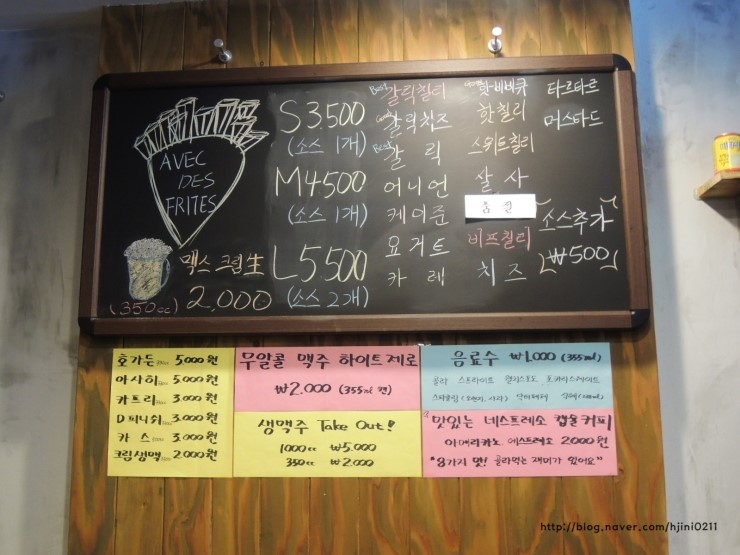 AVEC
DES
FRITES
맥스 크림生
(350cc) 2,000
S 3.500
(소스 1개)
M 4500
(소스 1개)
L 5500
(소스 2개)
Best 갈릭칠리
갈릭치즈
Best 갈릭
어니언
케이준
요거트
카레
핫바비큐
핫칠리
스위트칠리
살사
품절
비프칠리
치즈
타르타르
머스타드
소스추가
₩500
호가든 5,000원
아사히 5,000원
카트리 3,000원
D피니쉬 3,000원
카스 3,000원
크림생맥 2,000원
무알콜 맥주 하이트제로
₩2,000 (355ml 캔)
생맥주 Take Out!
1000cc ₩5,000
350cc ₩2,000
음료수 ₩1,000 (355ml)
콜라 스프라이트 웰치스포도 포카리스웨트
맛있는 네스프레소 캡슐커피
아메리카노 에스프레소 2000원
"8가지 맛! 골라먹는 재미가 있어요"
http://blog.naver.com/hjini0211